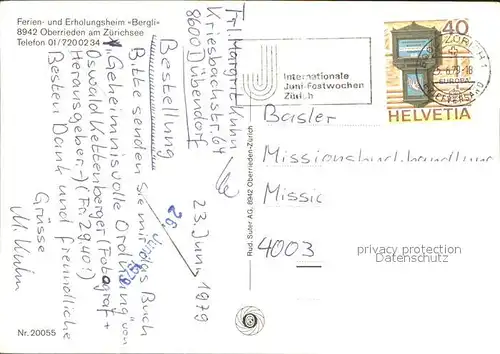 Ferien- und Erholungsheim «Bergli"
8942 Oberrieden am Zürichsee
Telefon 01/7200234
Frl. Margrit Kuhn
Kriesbachstr. 64
8600 Dübendorf
23. Juni 1979
Bestellung
Bitte senden Sie mir das Buch
"Geheimnisvolle Ordnung" von
Oswald Kettenberger (Fotograf +
Herausgeber.-) (Fr. 29.40!)
Besten Dank und freundliche
Grüsse
M. Kuhn
26. Juni 1979
Nr. 20055
Rud. Suter AG, 8942 Oberrieden-Zürich
Internationale
Juni-Festwochen
Zürich
ZÜRICH
25.6.79-18
EUROPA
BRIEFVERSAND
40
HELVETIA
Basler
Missionsbuchhandlung
Missio
4003
privacy protection
Datenschutz